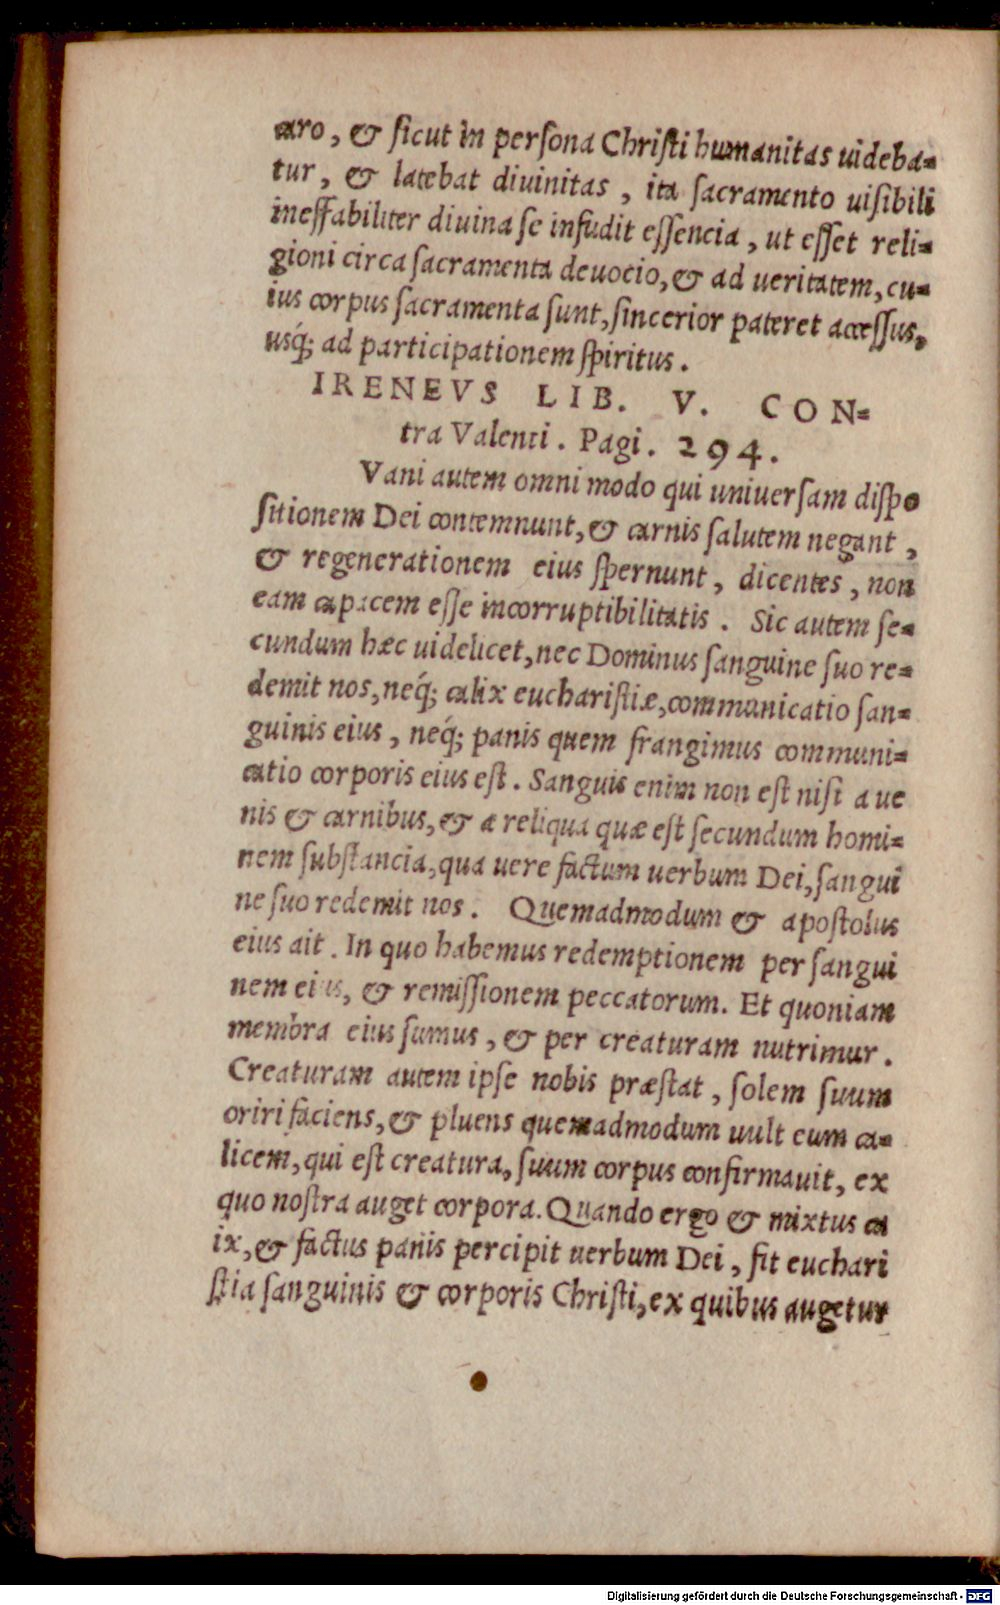 caro, & ſicut in perſona Chriſti humanitas uideba=
tur, & latebat diuinitas, ita ſacramento uiſibili
ineffabiliter diuina ſe infudit eſſencia, ut eſſet reli=
gioni circa ſacramenta deuotio, & ad ueritatem, cu=
ius corpus ſacramenta ſunt, ſincerior pateret acceſſus,
uſq́; ad participationem ſpiritus.
IRENEVS LIB. V. CON=
tra Valenti. Pagi. 294.
Vani autem omni modo qui uniuerſam diſpo
ſitionem Dei contemnunt, & carnis ſalutem negant,
& regenerationem eius ſpernunt, dicentes, non
eam capacem eſſe incorruptibilitatis. Sic autem ſe=
cundum hæc uidelicet, nec Dominus ſanguine ſuo re=
demit nos, neq́; calix euchariſtiæ, communicatio ſan=
guinis eius, neq́; panis quem frangimus communi=
catio corporis eius eſt. Sanguis enim non eſt niſi a ue
nis & carnibus, & a reliqua quæ eſt ſecundum homi=
nem ſubſtancia, qua uere factum uerbum Dei, ſangui
ne ſuo redemit nos. Quemadmodum & apoſtolus
eius ait. In quo habemus redemptionem per ſangui
nem eius, & remiſſionem peccatorum. Et quoniam
membra eius ſumus, & per creaturam nutrimur.
Creaturam autem ipſe nobis præſtat, ſolem ſuum
oriri faciens, & pluens quemadmodum uult eum ca=
licem, qui eſt creatura, ſuum corpus confirmauit, ex
quo noſtra auget corpora. Quando ergo & mixtus ca
ix, & factus panis percipit uerbum Dei, fit euchari
ſtia ſanguinis & corporis Chriſti, ex quibus augetur
Digitalisierung gefördert durch die Deutsche Forschungsgemeinschaft - DFG